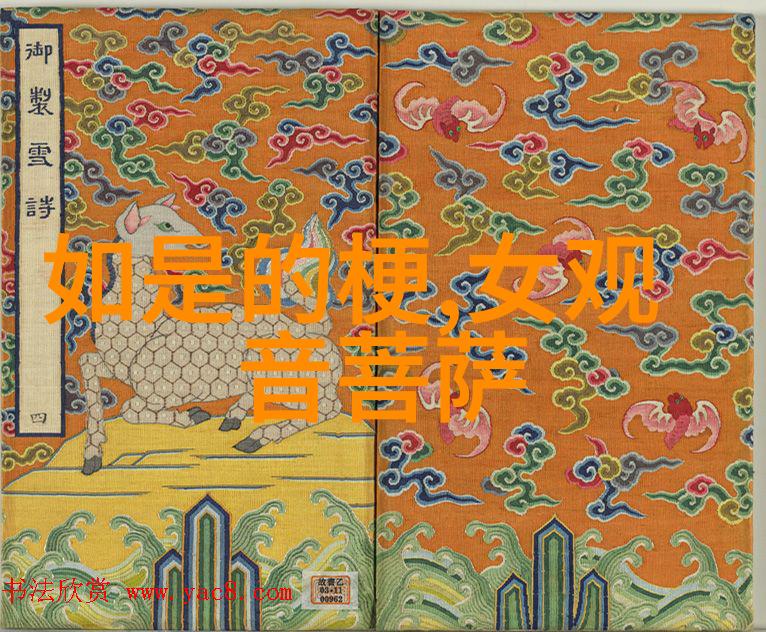 御製雪詩
四
如是的梗,女观
音菩萨
书法欣赏 www.yac8.com
故書乙
03•11
00962